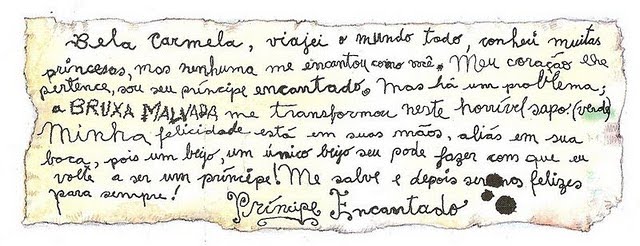 Bela Carmela, viajei o mundo todo, conheci muitas
princesas, mas nenhuma me encantou como você. Meu coração lhe
pertence, sou seu príncipe encantado. Mas há um problema;
a BRUXA MALVADA me transformou neste horrível sapo! (verde)
Minha felicidade está em suas mãos, aliás em sua
boca, pois um beijo, um único beijo seu pode fazer com que eu
volte a ser um príncipe! Me salve e depois seremos felizes
para sempre!
Príncipe Encantado